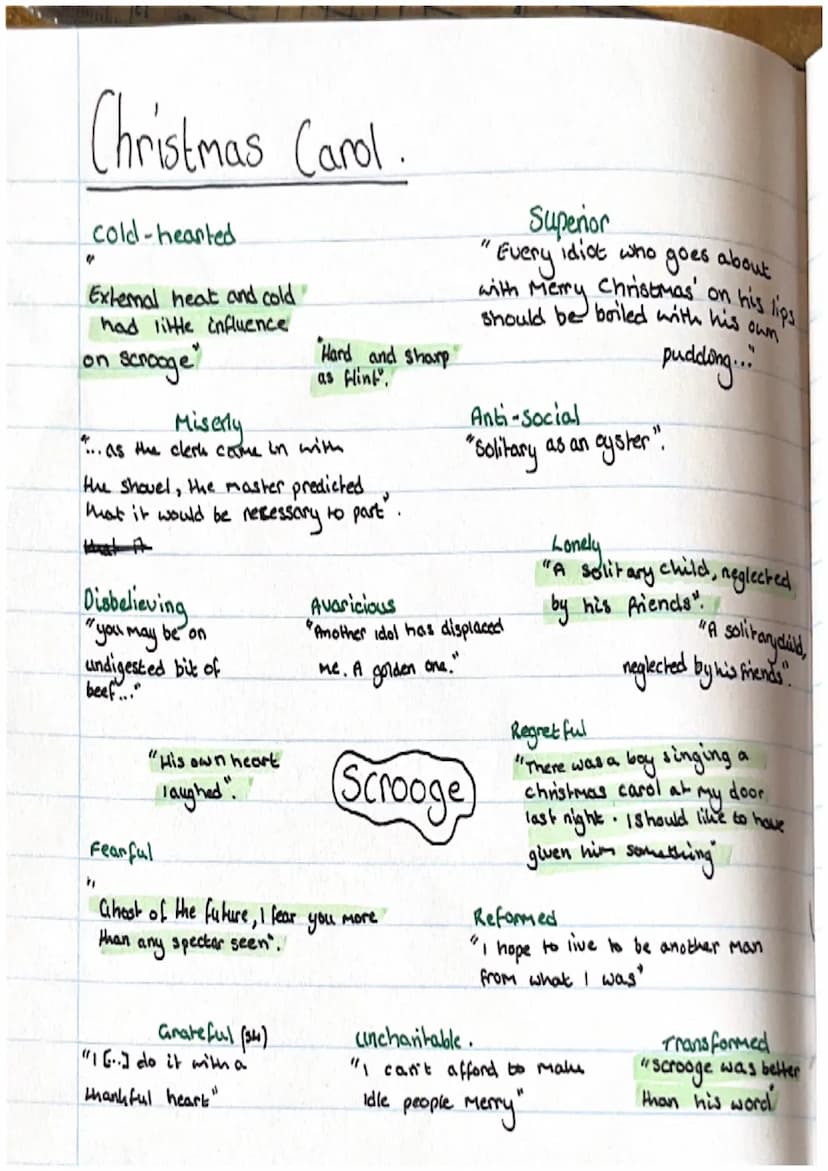 Christmas Carol.
Cold-hearted
"
External heat and cold
had little influence
on Scrooge"
"Hard and sharp
as flint".
Superior
"Every idiot who goes about
with Merry Christmas' on his lips
should be boiled with his own
pudding..."
Miserly
"...as the clerk came in with
the shovel, the master predicted
that it would be necessary to part".
that it
Anti-social
"Solitary as an oyster".
Lonely
"A solitary child, neglected
by his friends".
"A solitary child,
neglected by his friends".
Disbelieving
"you may be on
undigested bit of
beef..."
Avaricious
"Another idol has displaced
me. A golden one."
"His own heart
laughed".
Scrooge
Regretful
"There was a boy singing a
christmas carol at my door
last night. I should like to have
given him something"
Fearful
"
Ghost of the future, I fear you more
than any spectar seen".
Reformed
"I hope to live to be another man
from what I was"
Grateful (S4)
"I [..] do it with a
thankful heart"
Uncharitable.
"I can't afford to make
idle people merry"
Transformed
"Scrooge was better
than his word"